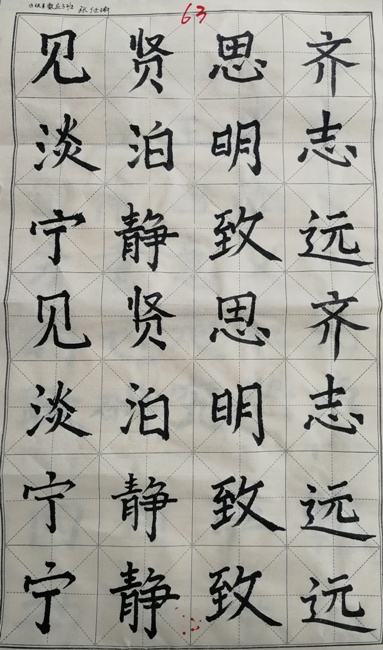 63
见贤思齐
淡泊明志
宁静致远
见贤思齐
淡泊明志
宁静致远
宁静致远